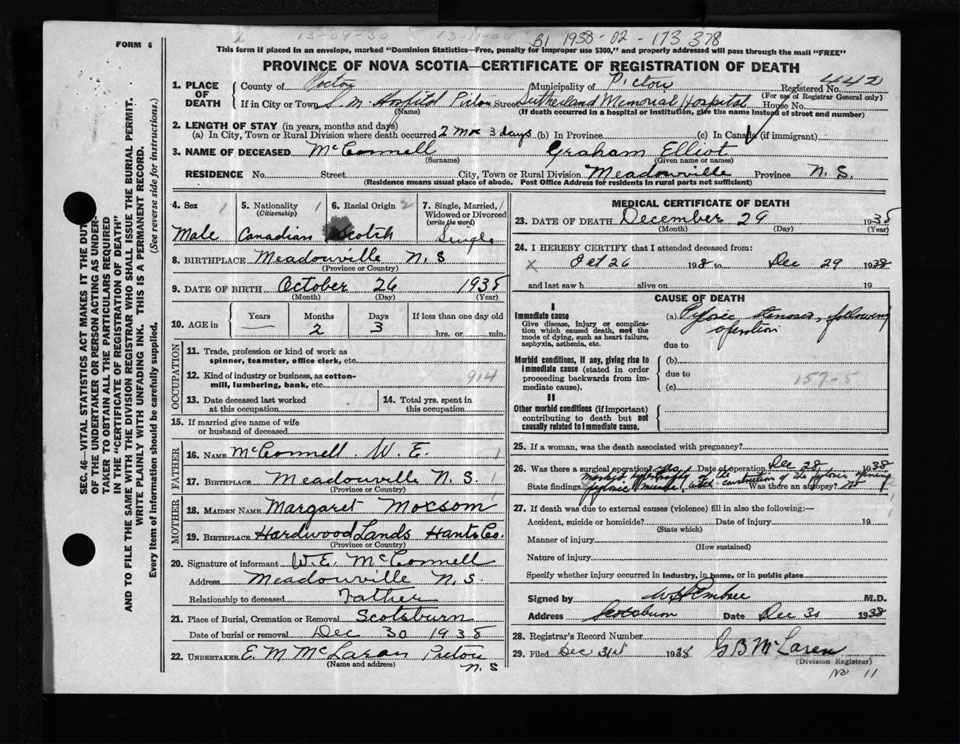 B1 1938-02-173378
FORM 6
This form if placed in an envelope, marked "Dominion Statistics—Free, penalty for improper use $300," and properly addressed will pass through the mail "FREE"
PROVINCE OF NOVA SCOTIA—CERTIFICATE OF REGISTRATION OF DEATH
1. PLACE OF DEATH County of Pictou Municipality of Pictou Registered No. 442
(For use of Registrar General only)
If in City or Town S M Hospital Pictou Street Sutherland Memorial Hospital House No.
(Name) (If death occurred in a hospital or institution, give the name instead of street and number)
2. LENGTH OF STAY (in years, months and days)
(a) In City, Town or Rural Division where death occurred 2 mos 3 days (b) In Province (c) In Canada (if immigrant)
3. NAME OF DECEASED McConnell Graham Elliot
(Surname) (Given name or names)
RESIDENCE No. Street City, Town or Rural Division Meadowville Province N. S.
(Residence means usual place of abode. Post Office Address for residents in rural parts not sufficient)
4. Sex 1 5. Nationality 1 6. Racial Origin 2 7. Single, Married, 1
(Citizenship) Widowed or Divorced
(write the word)
Male Canadian Scotch Single
8. BIRTHPLACE Meadowville N. S
(Province or Country)
9. DATE OF BIRTH October 26 1938
(Month) (Day) (Year)
10. AGE in Years Months Days If less than one day old
2 3 hrs. or min.
OCCUPATION
11. Trade, profession or kind of work as
spinner, teamster, office clerk, etc.
12. Kind of industry or business, as cotton-
mill, lumbering, bank, etc. 914
13. Date deceased last worked
at this occupation
14. Total yrs. spent in
this occupation
15. If married give name of wife
or husband of deceased
FATHER
16. NAME McConnell W. E. 1
17. BIRTHPLACE Meadowville N. S. 1
(Province or Country)
MOTHER
18. MAIDEN NAME Margaret Mocsom
19. BIRTHPLACE Hardwood Lands Hants Co.
(Province or Country)
20. Signature of informant W. E. McConnell
Address Meadowville N. S.
Relationship to deceased Father
21. Place of Burial, Cremation or Removal Scotsburn
Date of burial or removal Dec 30 1938
22. UNDERTAKER E. M McLaren Pictou
(Name and address) N. S
MEDICAL CERTIFICATE OF DEATH
23. DATE OF DEATH December 29 1938
(Month) (Day) (Year)
24. I HEREBY CERTIFY that I attended deceased from:
x Oct 26 1938 to Dec 29 1938
and last saw h alive on 19
CAUSE OF DEATH
I
Immediate cause
Give disease, injury or complica-
tion which caused death, not the
mode of dying, such as heart failure,
asphyxia, asthenia, etc.
(a) Pyloric stenosis, following
operation
due to
Morbid conditions, if any, giving rise to
immediate cause (stated in order
proceeding backwards from
immediate cause).
(b)
due to
(c) 157-5
II
Other morbid conditions (if important)
contributing to death but not
causally related to immediate cause.
25. If a woman, was the death associated with pregnancy?
26. Was there a surgical operation? yes Date of operation Dec 28 1938
State findings marked hypertrophy of the pyloric muscle, with constriction of the pyloric opening Was there an autopsy? No
27. If death was due to external causes (violence) fill in also the following:—
Accident, suicide or homicide? Date of injury 19
(State which)
Manner of injury
(How sustained)
Nature of injury
Specify whether injury occurred in industry, in home, or in public place
Signed by M.D.
Address Scotsburn Date Dec 30 1938
28. Registrar's Record Number
29. Filed Dec 31st 1938 G B McLaren
(Division Registrar)
No 11
SEC. 46—VITAL STATISTICS ACT MAKES IT THE DUTY
OF THE UNDERTAKER OR PERSON ACTING AS UNDER-
TAKER TO OBTAIN ALL THE PARTICULARS REQUIRED
IN THE "CERTIFICATE OF REGISTRATION OF DEATH"
AND TO FILE THE SAME WITH THE DIVISION REGISTRAR WHO SHALL ISSUE THE BURIAL PERMIT.
WRITE PLAINLY WITH UNFADING INK. THIS IS A PERMANENT RECORD.
Every item of information should be carefully supplied. (See reverse side for instructions.)